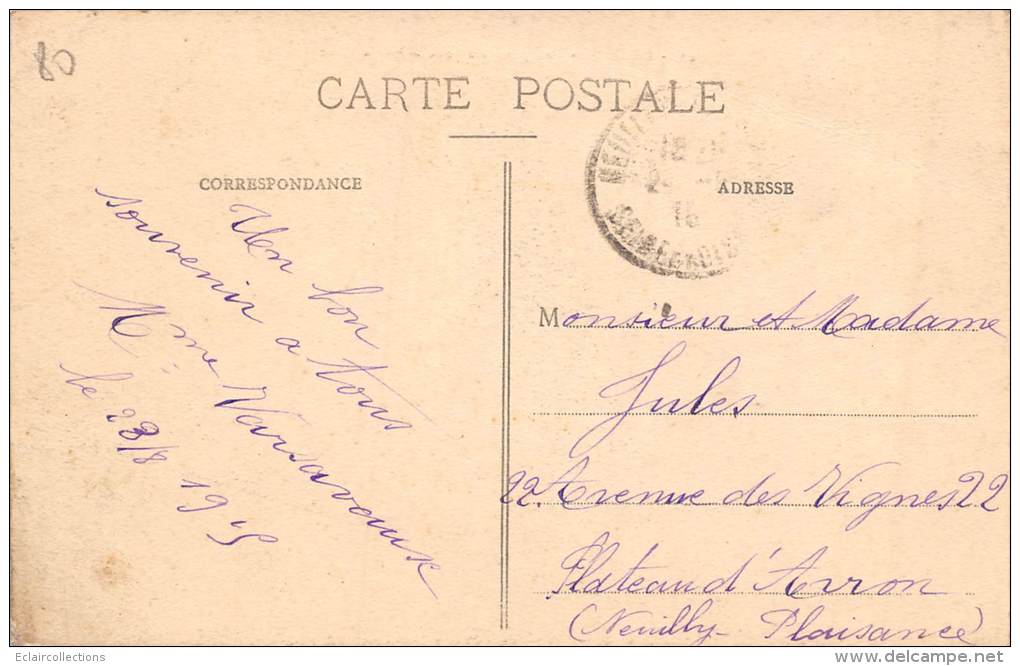 80
CARTE POSTALE
CORRESPONDANCE
ADRESSE
Un bon
souvenir a tous
Mme Varsavaux
le 23/8 1915
Monsieur et Madame
Jules
22 Avenue des Vignes 22
Plateau d'Avron
(Neuilly-Plaisance)
15
Eclaircollections
delcampe.net